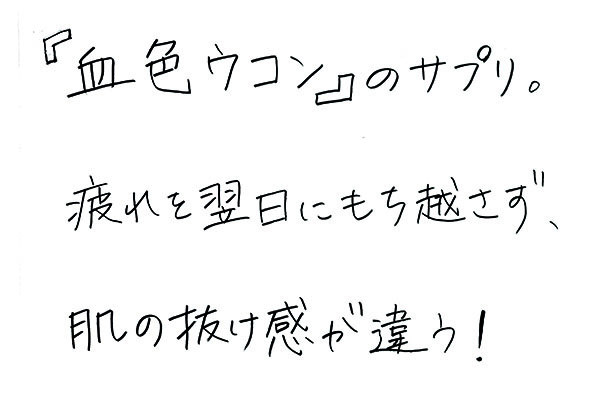 『血色ウコン』のサプリ。
疲れを翌日にもち越さず、
肌の抜け感が違う！